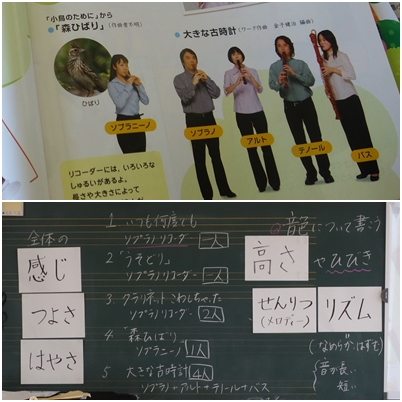 「小鳥のために」から
●「森ひばり」(作曲者不明)
ひばり
ソプラニーノ
リコーダーには、いろいろな
しゅるいがあるよ。
長さや大きさによって
●大きな古時計(ワーク作曲 金子健治 編曲)
ソプラノ
アルト
テノール
バス
全体の
感じ
つよさ
はやさ
1. いつも何度でも
ソプラノリコーダー 一人
2 「うそどり」
ソプラノリコーダー 一人
3 クラリネットこわしちゃった
ソプラノリコーダー 2人
4 「森ひばり」
ソプラニーノ 1人
5 大きな古時計 4人
ソプラノ+アルト+テノール+バス
音色について書こう
高さ
やひびき
せんりつ
(メロディー)
リズム
(なめらか はずむ)
音が長い
短い